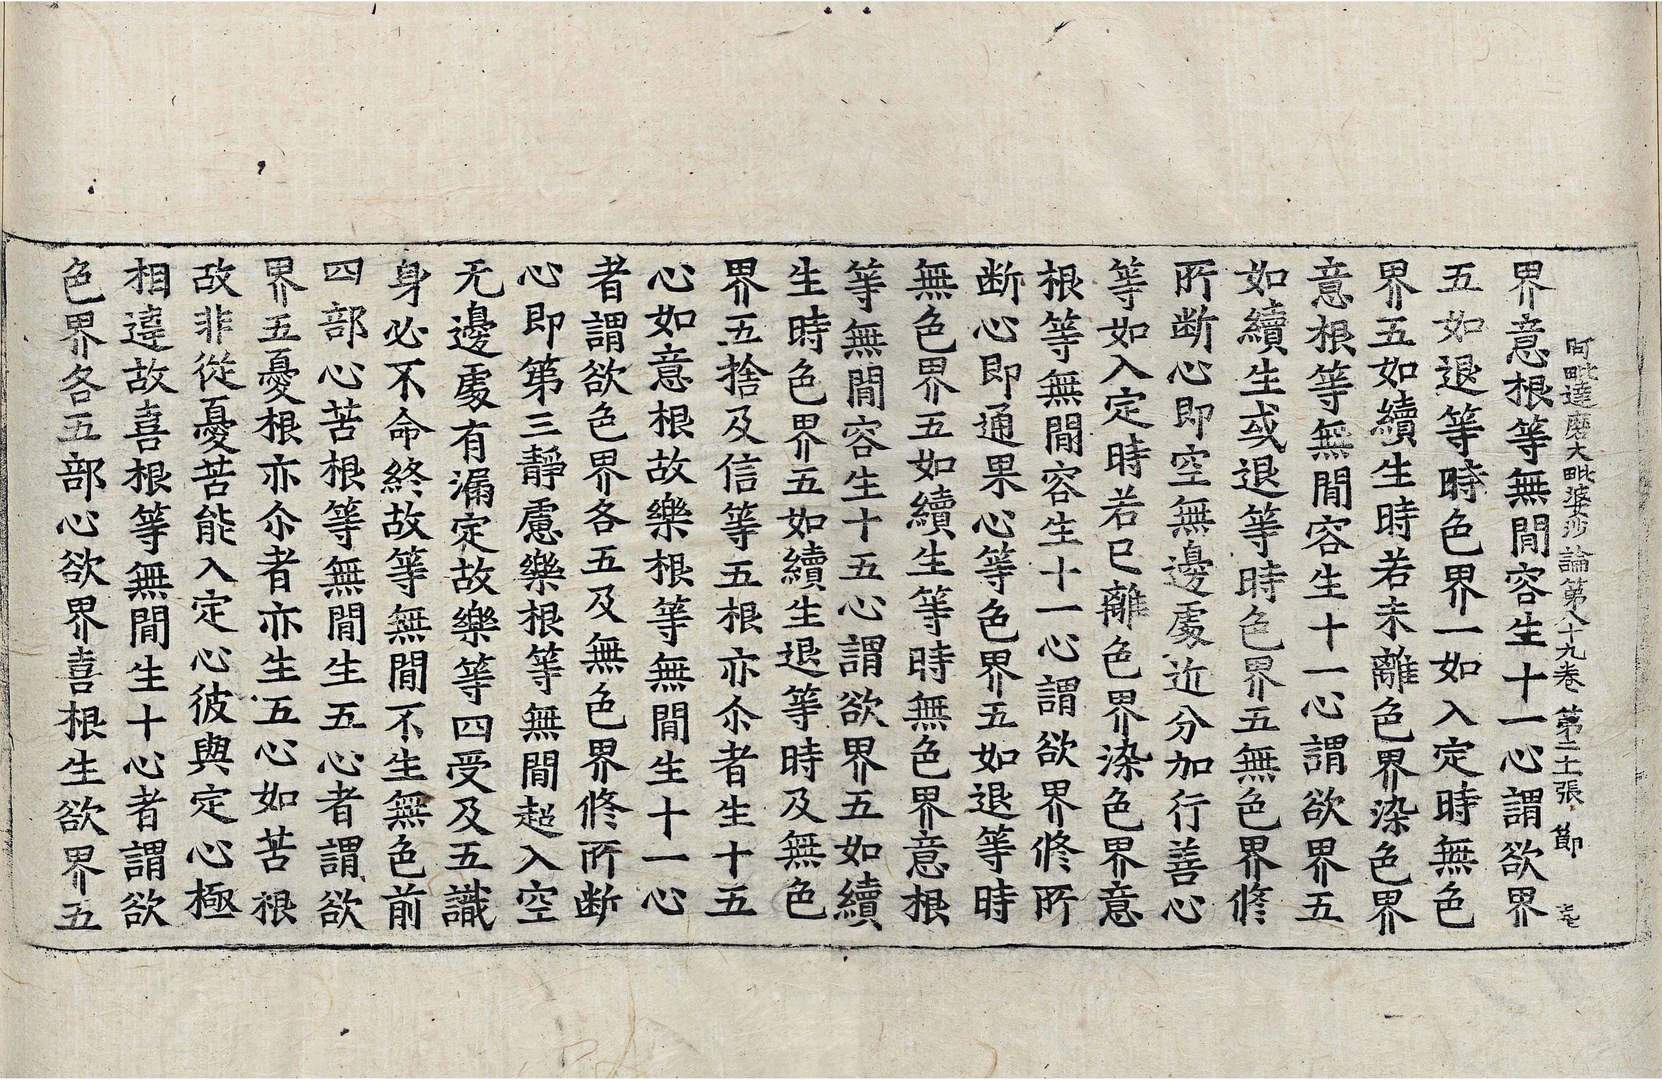 阿毗達磨大毗婆沙論第八十九卷 第二十張 節
界意根等無間容生十一心謂欲界
五如退等時色界一如入定時無色
界五如續生時若未離色界染色界
意根等無間容生十一心謂欲界五
如續生或退等時色界五無色界修
所断心即空無邊處近分加行善心
等如入定時若已離色界染色界意
根等無間容生十一心謂欲界修所
断心即通果心等色界五如退等時
無色界五如續生等時無色界意根
等無間容生十五心謂欲界五如續
生時色界五如續生退等時及無色
界五捨及信等五根亦尒者生十五
心如意根故樂根等無間生十一心
者謂欲色界各五及無色界修所断
心即第三靜慮樂根等無間超入空
无邊處有漏定故樂等四受及五識
身必不命終故等無間不生無色前
四部心苦根等無間生五心者謂欲
界五憂根亦尒者亦生五心如苦根
故非從憂苦能入定心彼與定心極
相違故喜根等無間生十心者謂欲
色界各五部心欲界喜根生欲界五